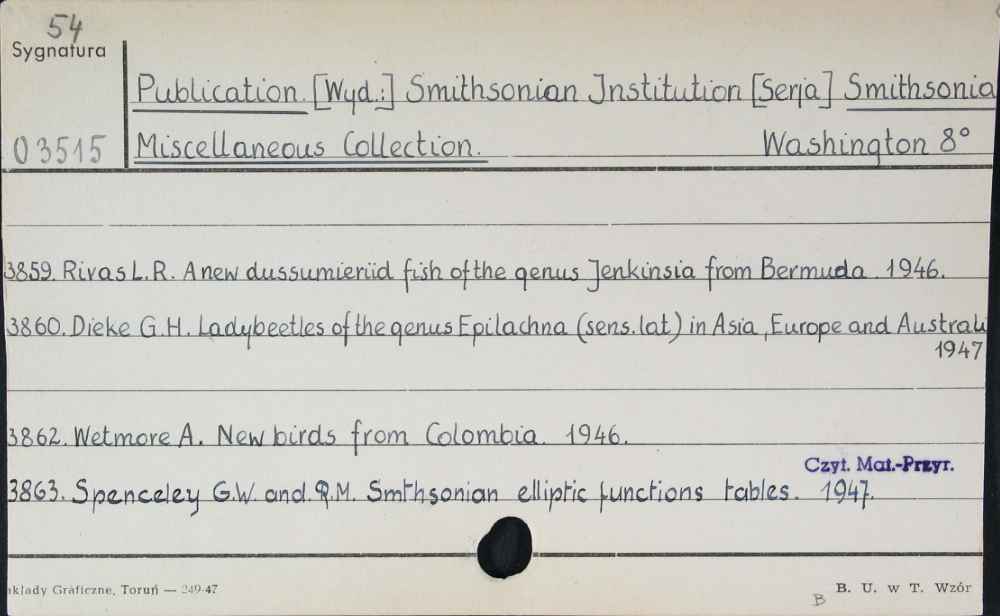 54
Sygnatura
Publication. [Wyd.:] Smithsonian Institution [Serja] Smithsonia
03515 Miscellaneous Collection. Washington 8°
3859. Rivas L.R. A new dussumieriid fish of the genus Jenkinsia from Bermuda. 1946.
3860. Dieke G.H. Ladybeetles of the genus Epilachna (sens. lat.) in Asia, Europe and Australi
1947
3862. Wetmore A. New birds from Colombia. 1946.
Czyt. Mat.-Przyr.
3863. Spenceley G.W. and R.M. Smthsonian elliptic functions tables. 1947.
kłady Graficzne, Toruń — 249-47
B B. U. w T. Wzór